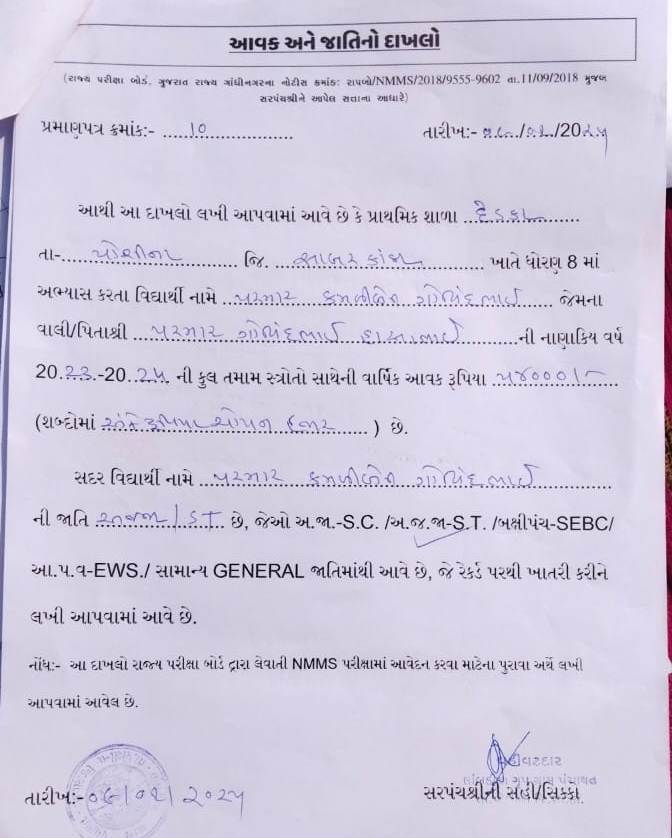 આવક અને જાતિનો દાખલો
(રાજ્ય પરીક્ષા બોર્ડ, ગુજરાત રાજ્ય ગાંધીનગરના નોટીસ ક્રમાંક: રાપબો/NMMS/2018/9555-9602 તા.11/09/2018 મુજબ
સરપંચશ્રીને આપેલ સત્તાના આધારે)
પ્રમાણપત્ર ક્રમાંક:- ....10................
તારીખ:- /20૨૫
આથી આ દાખલો લખી આપવામાં આવે છે કે પ્રાથમિક શાળા
તા-...પોશીના... જિ. ...સાબરકાંઠા... ખાતે ધોરણ 8 માં
અભ્યાસ કરતા વિદ્યાર્થી નામે ..પરમાર ગોવિંદભાઈ.. જેમના
વાલી/પિતાશ્રી ..પરમાર ગોવિંદભાઈ ...ની નાણાકિય વર્ષ
20.૨૩.-20..૨૫. ની કુલ તમામ સ્ત્રોતો સાથેની વાર્ષિક આવક રૂપિયા ..૫૪૦૦૦/-
(શબ્દોમાં ચોપન હજાર......) છે.
સદર વિદ્યાર્થી નામે ...પરમાર ગોવિંદભાઈ
ની જાતિ ..અજજા/ST.. છે, જેઓ અ.જા.-S.C. /અ.જ.જા-S.T. /બક્ષીપંચ-SEBC/
આ.પ.વ-EWS./ સામાન્ય GENERAL જાતિમાંથી આવે છે, જે રેકર્ડ પરથી ખાતરી કરીને
લખી આપવામાં આવે છે.
નોંધ:- આ દાખલો રાજ્ય પરીક્ષા બોર્ડ દ્વારા લેવાતી NMMS પરીક્ષામાં આવેદન કરવા માટેના પુરાવા અર્થે લખી
આપવામાં આવેલ છે.
વહીવટદાર
ગ્રુપ ગ્રામ પંચાયત
તારીખ:- ૨૦૨૫
સરપંચશ્રીની સહી/સિક્કા